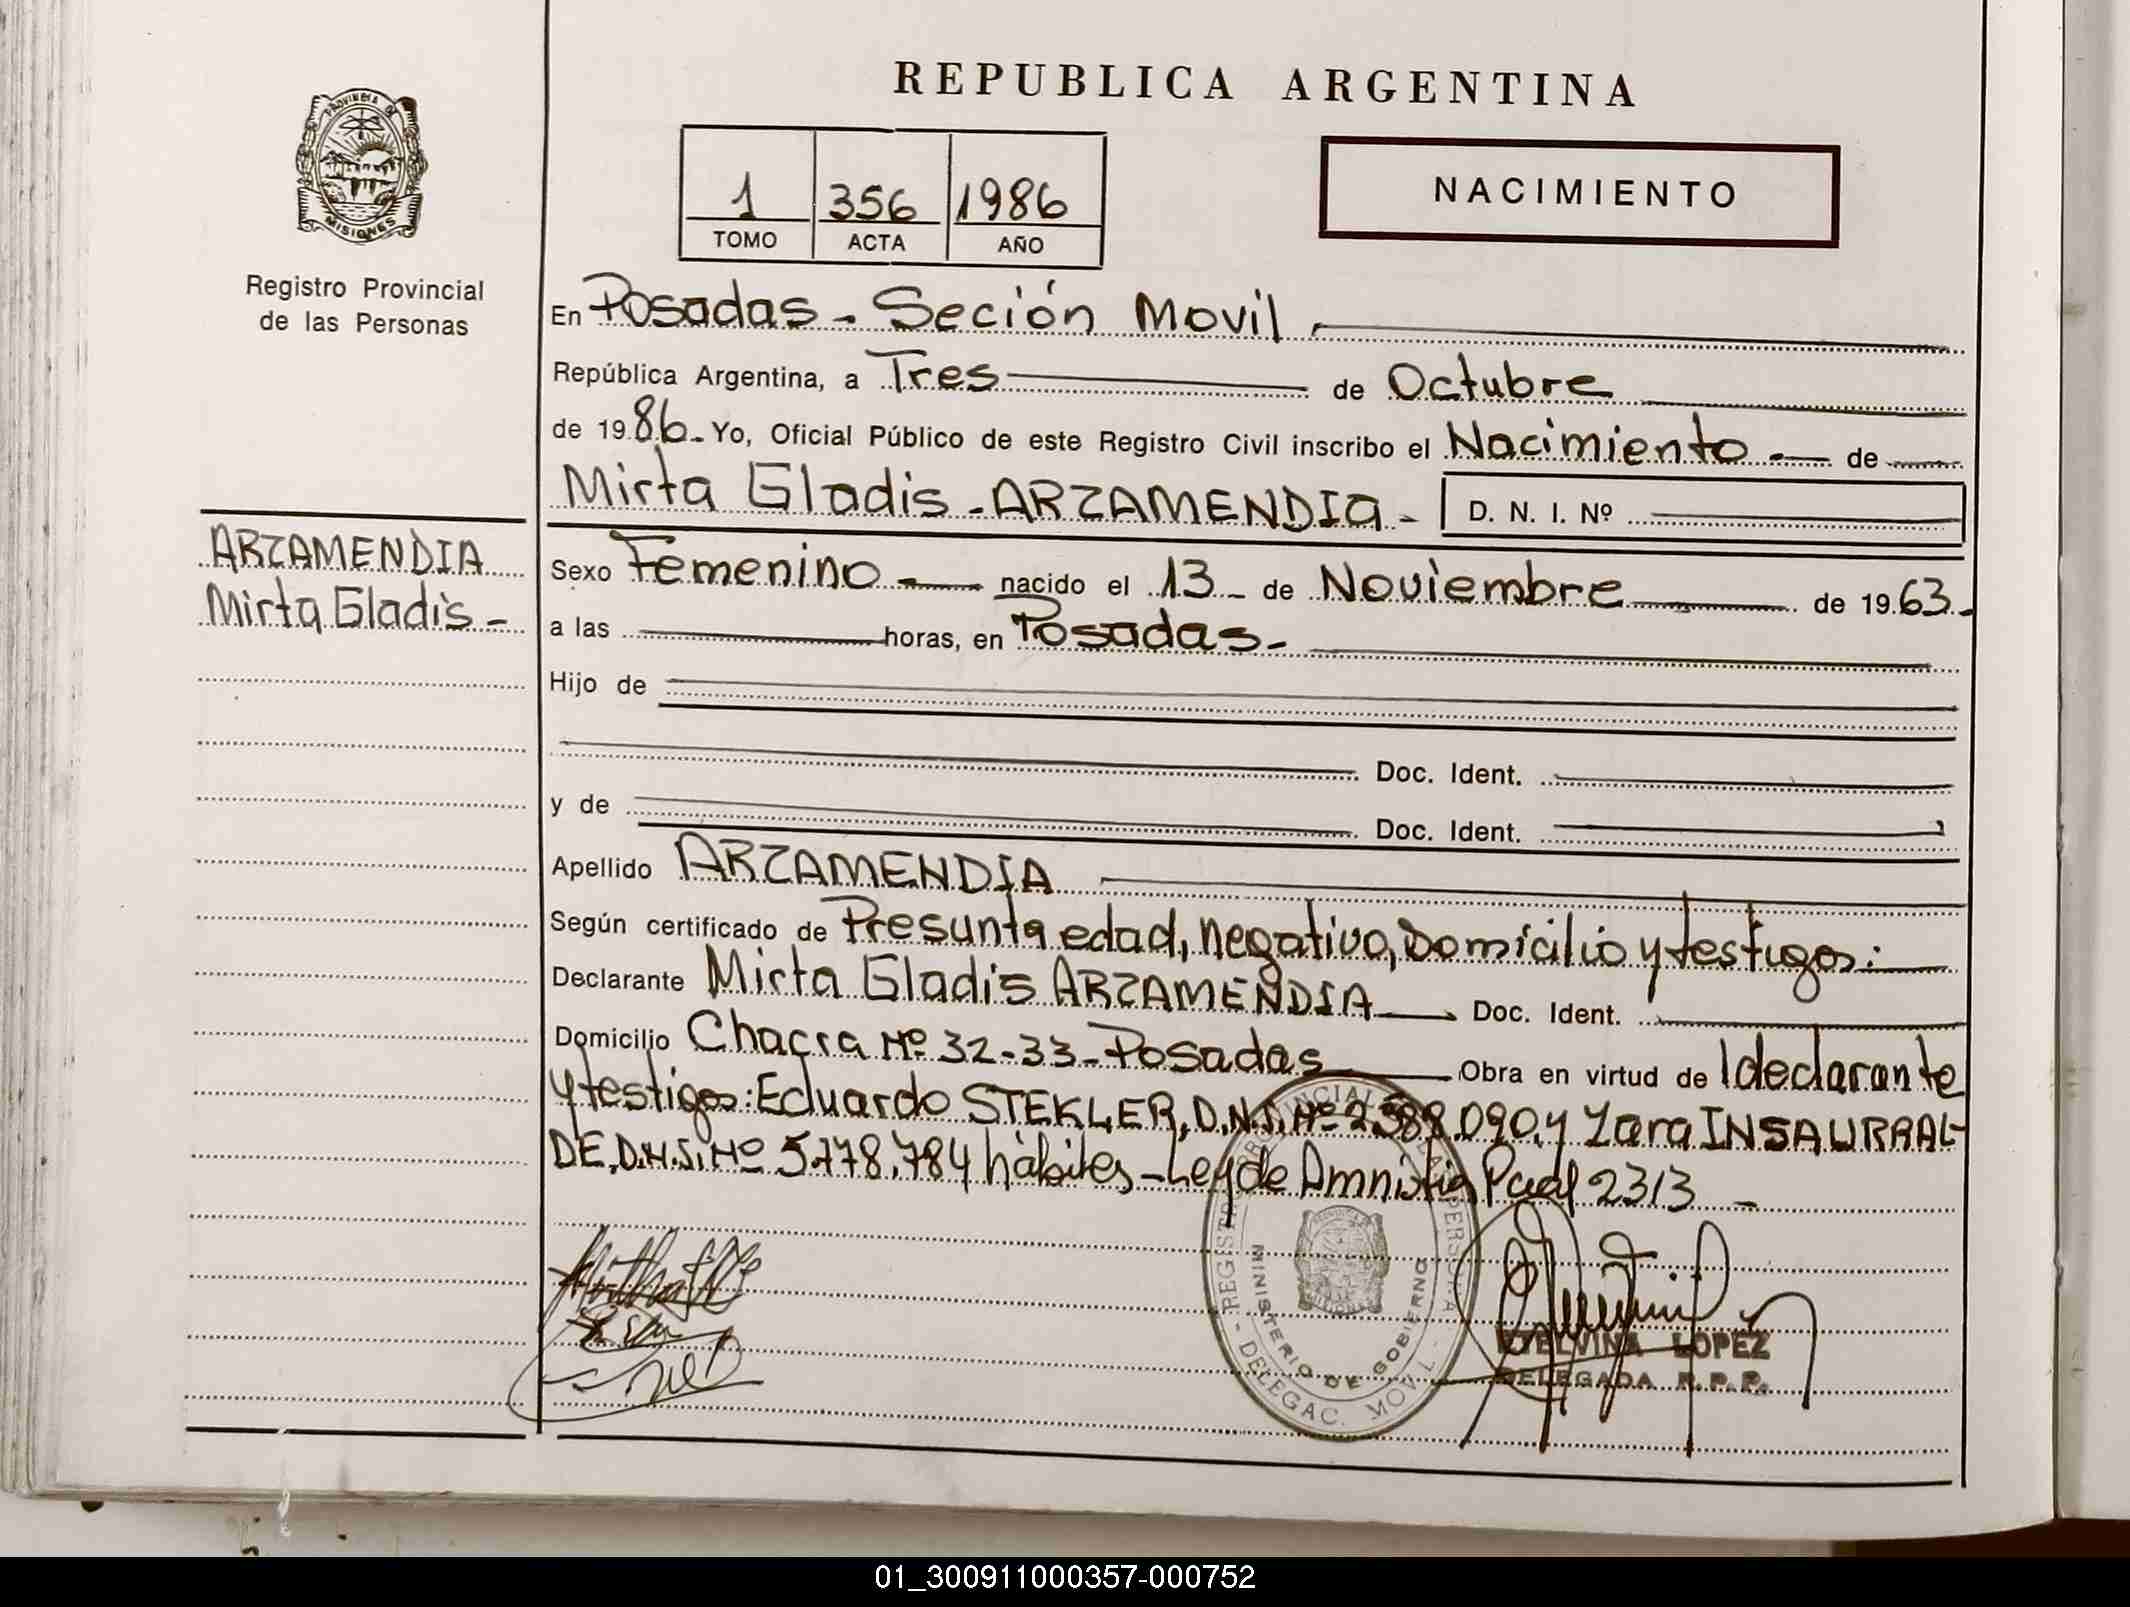 REPUBLICA ARGENTINA
PROVINCIA DE
MISIONES
Registro Provincial
de las Personas
1 356 1986
TOMO ACTA AÑO
NACIMIENTO
En Posadas - Seción Movil
República Argentina, a Tres de Octubre
de 1986 - Yo, Oficial Público de este Registro Civil inscribo el Nacimiento de
Mirta Gladis - ARZAMENDIA - D. N. I. Nº
ARZAMENDIA
Mirta Gladis -
Sexo Femenino nacido el 13 - de Noviembre de 1963 -
a las horas, en Posadas -
Hijo de
Doc. Ident.
y de Doc. Ident.
Apellido ARZAMENDIA
Según certificado de Presunta edad, negativo, Domicilio y testigos:
Declarante Mirta Gladis ARZAMENDIA Doc. Ident.
Domicilio Chacra Nº 32-33 - Posadas Obra en virtud de ldeclarante
y testigos: Eduardo STEKLER, D.N.I. Nº 2.388.090, y Zara INSAURRAL-
DE, D.N.I. Nº 5.778.784 hábiles - Ley de Amnistia Pcal 2313 -
REGISTRO PROVINCIAL DE LAS PERSONAS
MINISTERIO DE GOBIERNO
- DELEGAC. MOVIL -
LOPEZ
DELEGADA R.P.P.
01_300911000357-000752